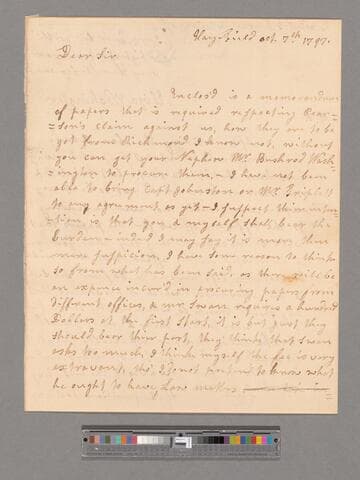 Hayfield Oct. 7th 1787.
Dear Sir
Inclosd is a memorandum
of papers that is required respecting Pear-
=son's claim against us, how they are to be
got from Richmond I know not, without
you can get your Nephew Mr. Bushrod Wash-
=ington to procure them, - I have not been
able to bring Capt Johnston or Mr. Triplett
to any agreement as yet - I suspect their inten-
=tion, is that you & myself shall bear the
burden - indeed I may say it is more than
mere suspicion, I have some reason to think
so from what has been said, as there will be
an expence incurd in procuring papers from
diffirent offices, & Mr Swan requires a hundred
Dollars at the first start, it is but just they
should bear their part, they think that Swan
asks too much, I think myself the fee is very
extravent, tho' I do not pretend to know what
he ought to have, Law matters